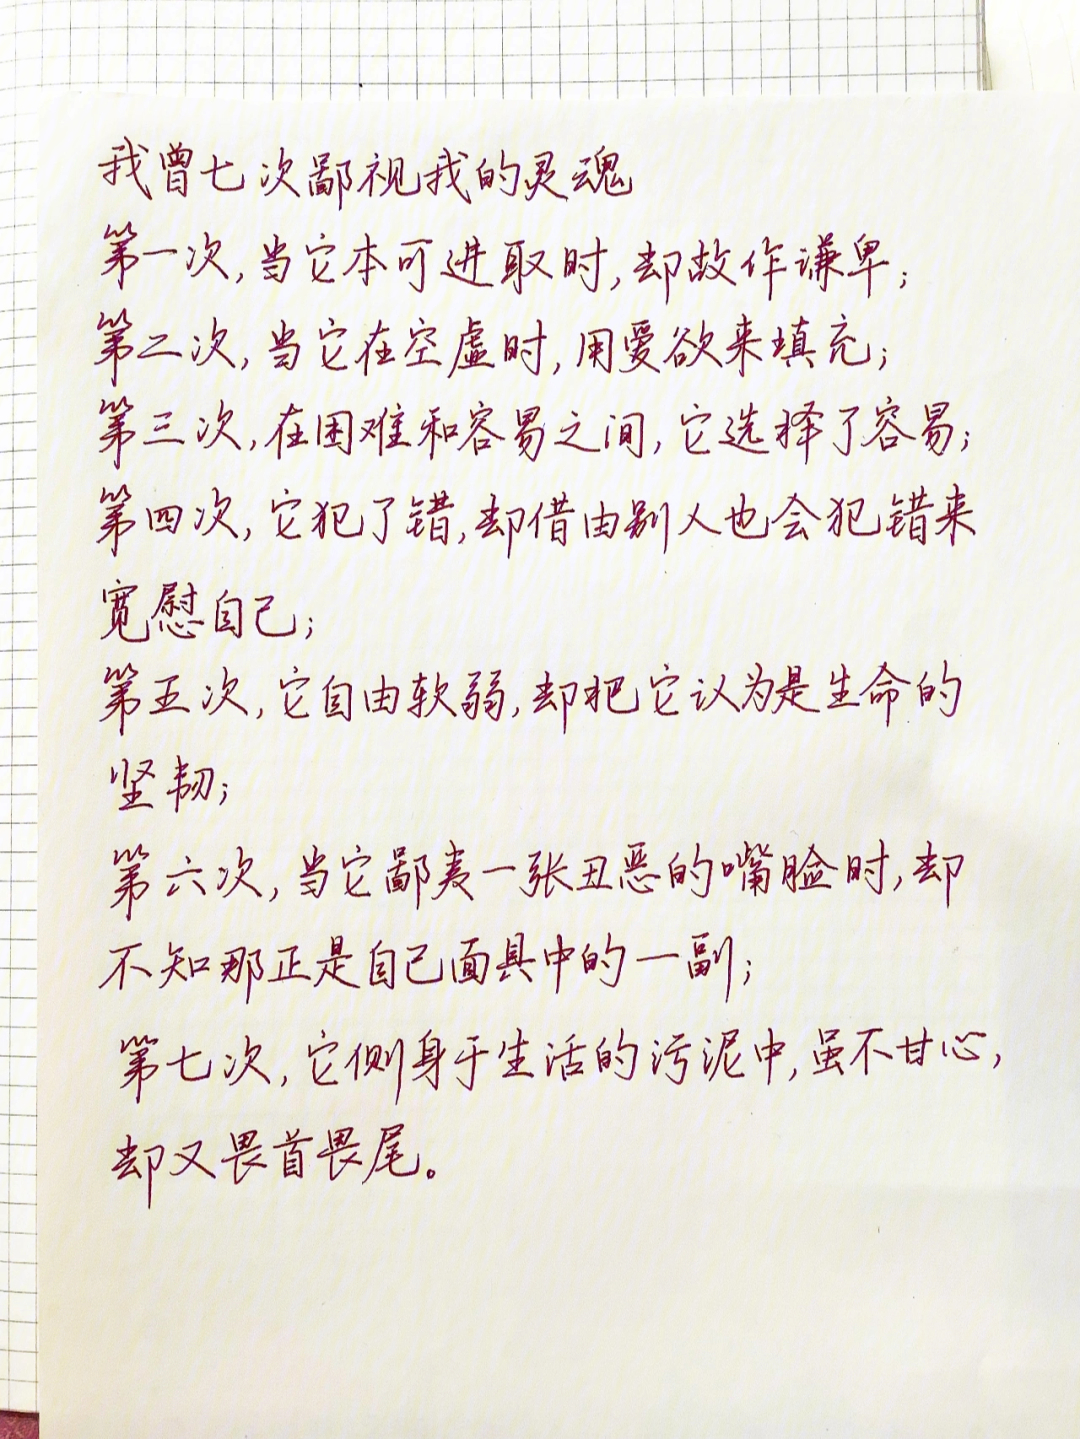 我曾七次鄙视我的灵魂
第一次,当它本可进取时,却故作谦卑;
第二次,当它在空虚时,用爱欲来填充;
第三次,在困难和容易之间,它选择了容易;
第四次,它犯了错,却借由别人也会犯错来
宽慰自己;
第五次,它自由软弱,却把它认为是生命的
坚韧;
第六次,当它鄙夷一张丑恶的嘴脸时,却
不知那正是自己面具中的一副;
第七次,它侧身于生活的污泥中,虽不甘心,
却又畏首畏尾。